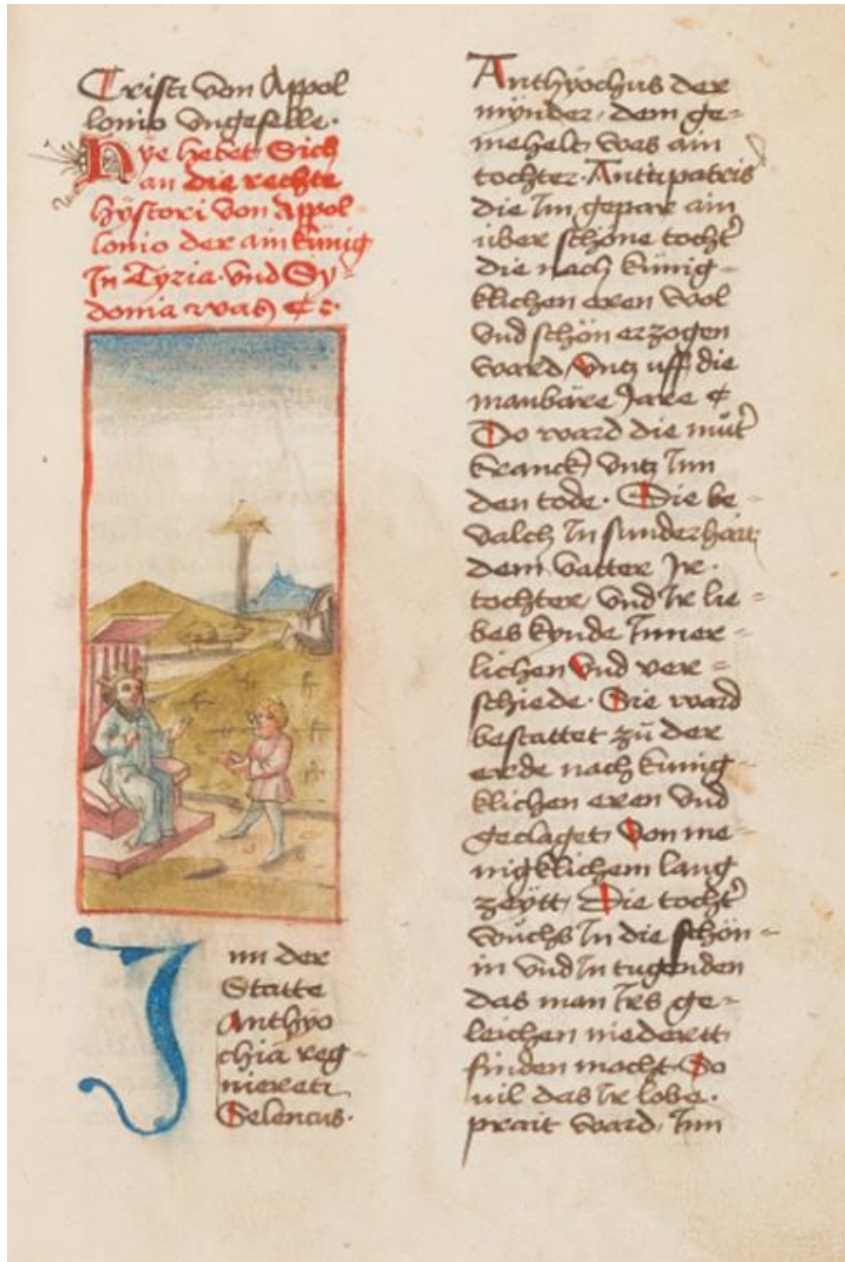 Cristi von Appol
lonio vngefelle.
Hye hebet Sich
an die rechte
hÿstori von Appol
lonio der ain künig
In Tyria. vnd Sy-
donia was ⁊ c.
Inn der
Statte
Anthÿo
chia reg-
nieret
Selencus.
Anthÿochus der
mÿnder, dem ge=
mehelt was ain
tochter. Antipatris
die Im gepar ain
über schöne tocht͛
die nach künig-
klichen eren wol
vnd schön erzogen
ward, vntz uff die
manbäre Jare ⁊
Do ward die müt͛
kranck vntz Inn
den tode. Die be-
valch In sunderhait
dem vatter Ir.
tochter, vnd Ir lie=
bes kynde Inner=
lichen vnd ver=
schiede. Sie ward
bestattet zü der
erde nach künig-
klichen eren vnd
geclaget, von me-
nigklichem lang
zeÿtt, Die tocht͛
wüchs In die schön=
in vnd In tugenden
das man Irs ge=
leichen niedertt
finden mocht. So
uil das Ir lobe.
prait ward, Inn